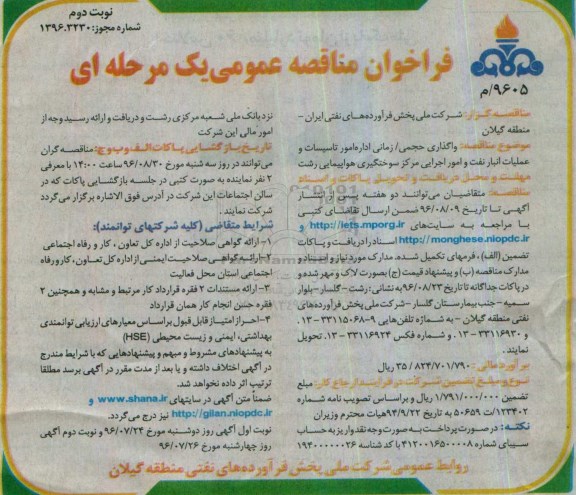 نوبت دوم
شماره مجوز: ۱۳۹۶.۳۲۳۰
فراخوان مناقصه عمومی یک مرحله ای
۹۶۰۵/م
مناقصه گزار: شرکت ملی پخش فرآورده‌های نفتی ایران -
منطقه گیلان
موضوع مناقصه: واگذاری حجمی/ زمانی اداره امور تاسیسات و
عملیات انبار نفت و امور اجرایی مرکز سوختگیری هواپیمایی رشت
مهلت و محل دریافت و تحویل پاکات و اسناد
مناقصه: متقاضیان می‌توانند دو هفته پس از انتشار
آگهی تا تاریخ ۹۶/۰۸/۰۹ ضمن ارسال تقاضای کتبی
با مراجعه به سایت‌های http://iets.mporg.ir و
http://monghese.niopdc.ir اسناد را دریافت و پاکات
تضمین (الف)، فرمهای تکمیل شده، مدارک مورد نیاز و اسناد و
مدارک مناقصه (ب) و پیشنهاد قیمت (ج) بصورت لاک و مهر شده و
در پاکات جداگانه تا تاریخ ۹۶/۰۸/۲۳ به نشانی: رشت - گلسار - بلوار
سمیه - جنب بیمارستان گلسار - شرکت ملی پخش فرآورده‌های
نفتی منطقه گیلان - به شماره تلفن‌هایی ۹-۳۳۱۱۵۰۶۸-۰۱۳
و ۳۳۱۱۶۹۳۰-۰۱۳ و شماره فکس ۳۳۱۱۶۹۲۴-۰۱۳ تحویل
نمایند.
برآورد مالی: ۳۵/۸۲۴/۷۰۱/۷۹۰ ریال
نوع و مبلغ تضمین شرکت در فرآیند ارجاع کار: مبلغ
تضمین ۱/۷۹۱/۰۰۰/۰۰۰ ریال و براساس تصویب نامه شماره
۱۲۳۴۰۲/ت ۵۰۶۵۹ به تاریخ ۹۴/۹/۲۲ هیات محترم وزیران
نکته: در صورت پرداخت به صورت وجه نقد واریز به حساب
سیبای شماره ۴۱۲۰۰۱۶۵۰۰۰۰۸ با کد شناسه ۱۹۴۰۰۰۰۰۰۲۶
نزد بانک ملی شعبه مرکزی رشت و دریافت و ارائه رسید وجه از
امور مالی این شرکت
تاریخ بازگشایی پاکات الف وب و ج: مناقصه گران
می‌توانند در روز سه شنبه مورخ ۹۶/۰۸/۳۰ ساعت ۱۴:۰۰ با معرفی
۲ نفر نماینده به صورت کتبی در جلسه بازگشایی پاکات که در
سالن اجتماعات این شرکت در آدرس فوق الاشاره برگزار می‌گردد
شرکت نمایند.
شرایط متقاضی (کلیه شرکتهای توانمند):
۱- ارائه گواهی صلاحیت از اداره کل تعاون، کار و رفاه اجتماعی
۲- ارائه گواهی صلاحیت ایمنی از اداره کل تعاون، کار و رفاه
اجتماعی استان محل فعالیت
۳- ارائه مستندات ۲ فقره قرارداد کار مرتبط و مشابه و همچنین ۲
فقره حسن انجام کار همان قرارداد
۴- احراز امتیاز قابل قبول براساس معیارهای ارزیابی توانمندی
بهداشتی، ایمنی و زیست محیطی (HSE)
به پیشنهادهای مشروط و مبهم و پیشنهادهایی که با شرایط مندرج
در آگهی اختلاف داشته و یا بعد از مدت مقرر در آگهی برسد مطلقا
ترتیب اثر داده نخواهد شد.
ضمناً متن آگهی در سایتهای www.shana.ir و
http://gilan.niopdc.ir نیز درج می‌گردد.
نوبت اول آگهی روز دوشنبه مورخ ۹۶/۰۷/۲۴ و نوبت دوم آگهی
روز چهارشنبه مورخ ۹۶/۰۷/۲۶
روابط عمومی شرکت ملی پخش فرآورده‌های نفتی منطقه گیلان